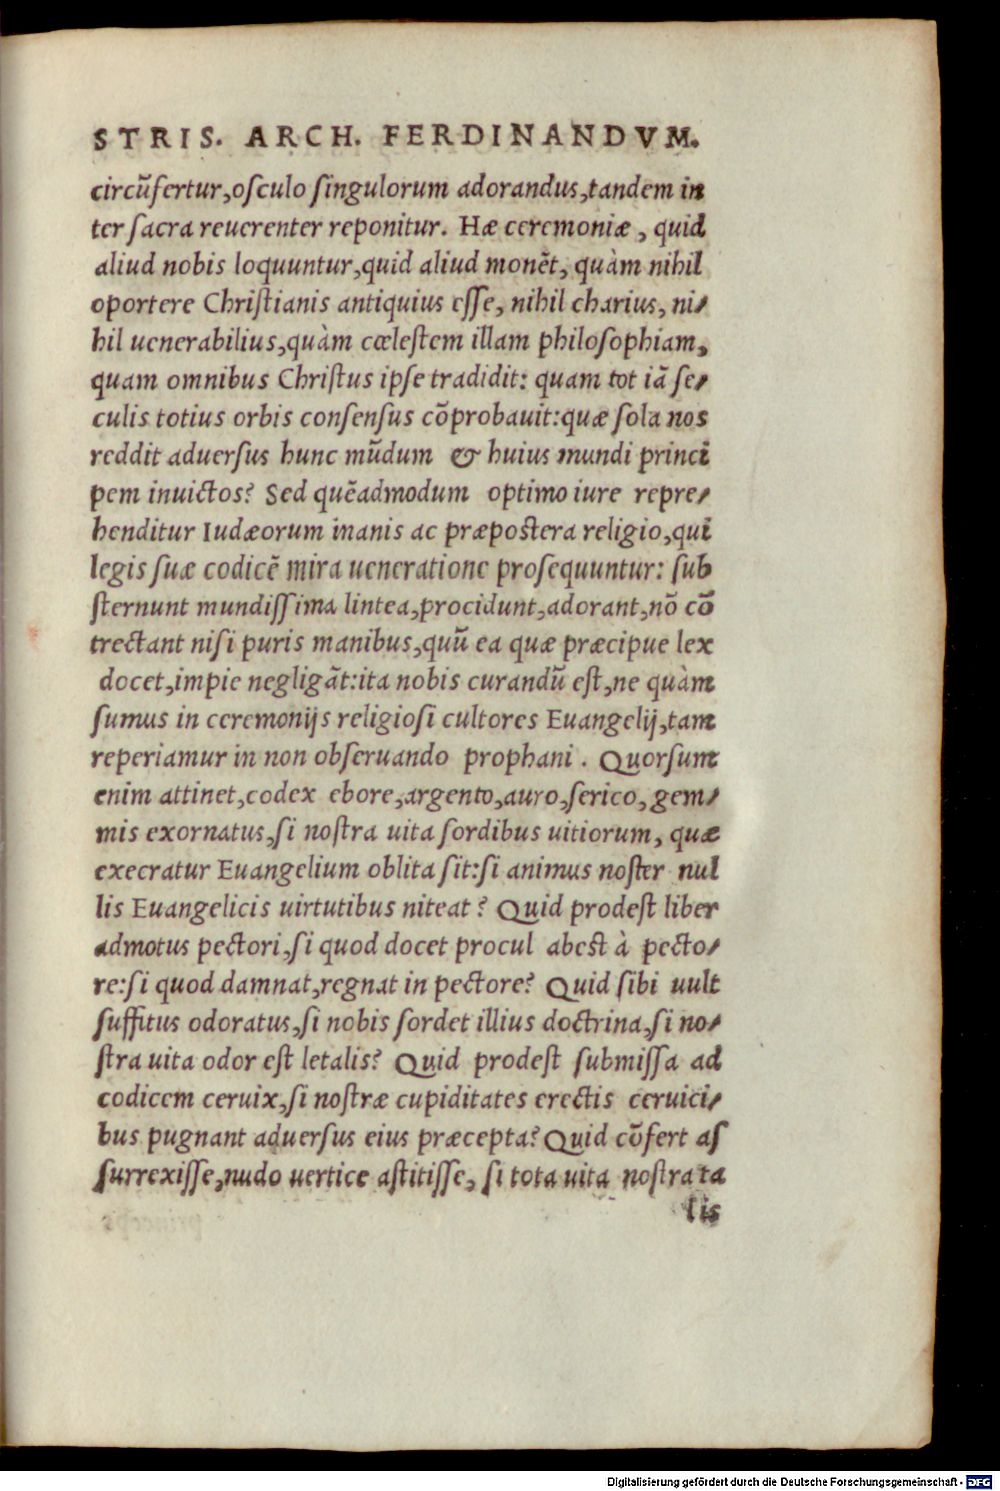 STRIS. ARCH. FERDINANDVM.
circũfertur,osculo singulorum adorandus,tandem in
ter sacra reuerenter reponitur. Hæ ceremoniæ, quid
aliud nobis loquuntur,quid aliud monẽt, quàm nihil
oportere Christianis antiquius esse, nihil charius, ni-
hil uenerabilius,quàm cœlestem illam philosophiam,
quam omnibus Christus ipse tradidit: quam tot iã se-
culis totius orbis consensus cõprobauit:quæ sola nos
reddit aduersus hunc mũdum & huius mundi princi
pem inuictos? Sed quẽadmodum optimo iure repre-
henditur Iudæorum inanis ac præpostera religio,qui
legis suæ codicẽ mira ueneratione prosequuntur: sub
sternunt mundissima lintea,procidunt,adorant,nõ cõ
trectant nisi puris manibus,quũ ea quæ præcipue lex
docet,impie negligãt:ita nobis curandũ est,ne quàm
sumus in ceremonijs religiosi cultores Euangelij,tam
reperiamur in non obseruando prophani. Quorsum
enim attinet,codex ebore,argento,auro,serico,gem-
mis exornatus,si nostra uita sordibus uitiorum, quæ
execratur Euangelium oblita sit:si animus noster nul
lis Euangelicis uirtutibus niteat? Quid prodest liber
admotus pectori,si quod docet procul abest à pecto-
re:si quod damnat,regnat in pectore? Quid sibi uult
suffitus odoratus,si nobis sordet illius doctrina,si no-
stra uita odor est letalis? Quid prodest submissa ad
codicem ceruix,si nostræ cupiditates erectis ceruici-
bus pugnant aduersus eius præcepta? Quid cõfert as
surrexisse,nudo uertice astitisse, si tota uita nostra ta
lis
Digitalisierung gefördert durch die Deutsche Forschungsgemeinschaft - DFG